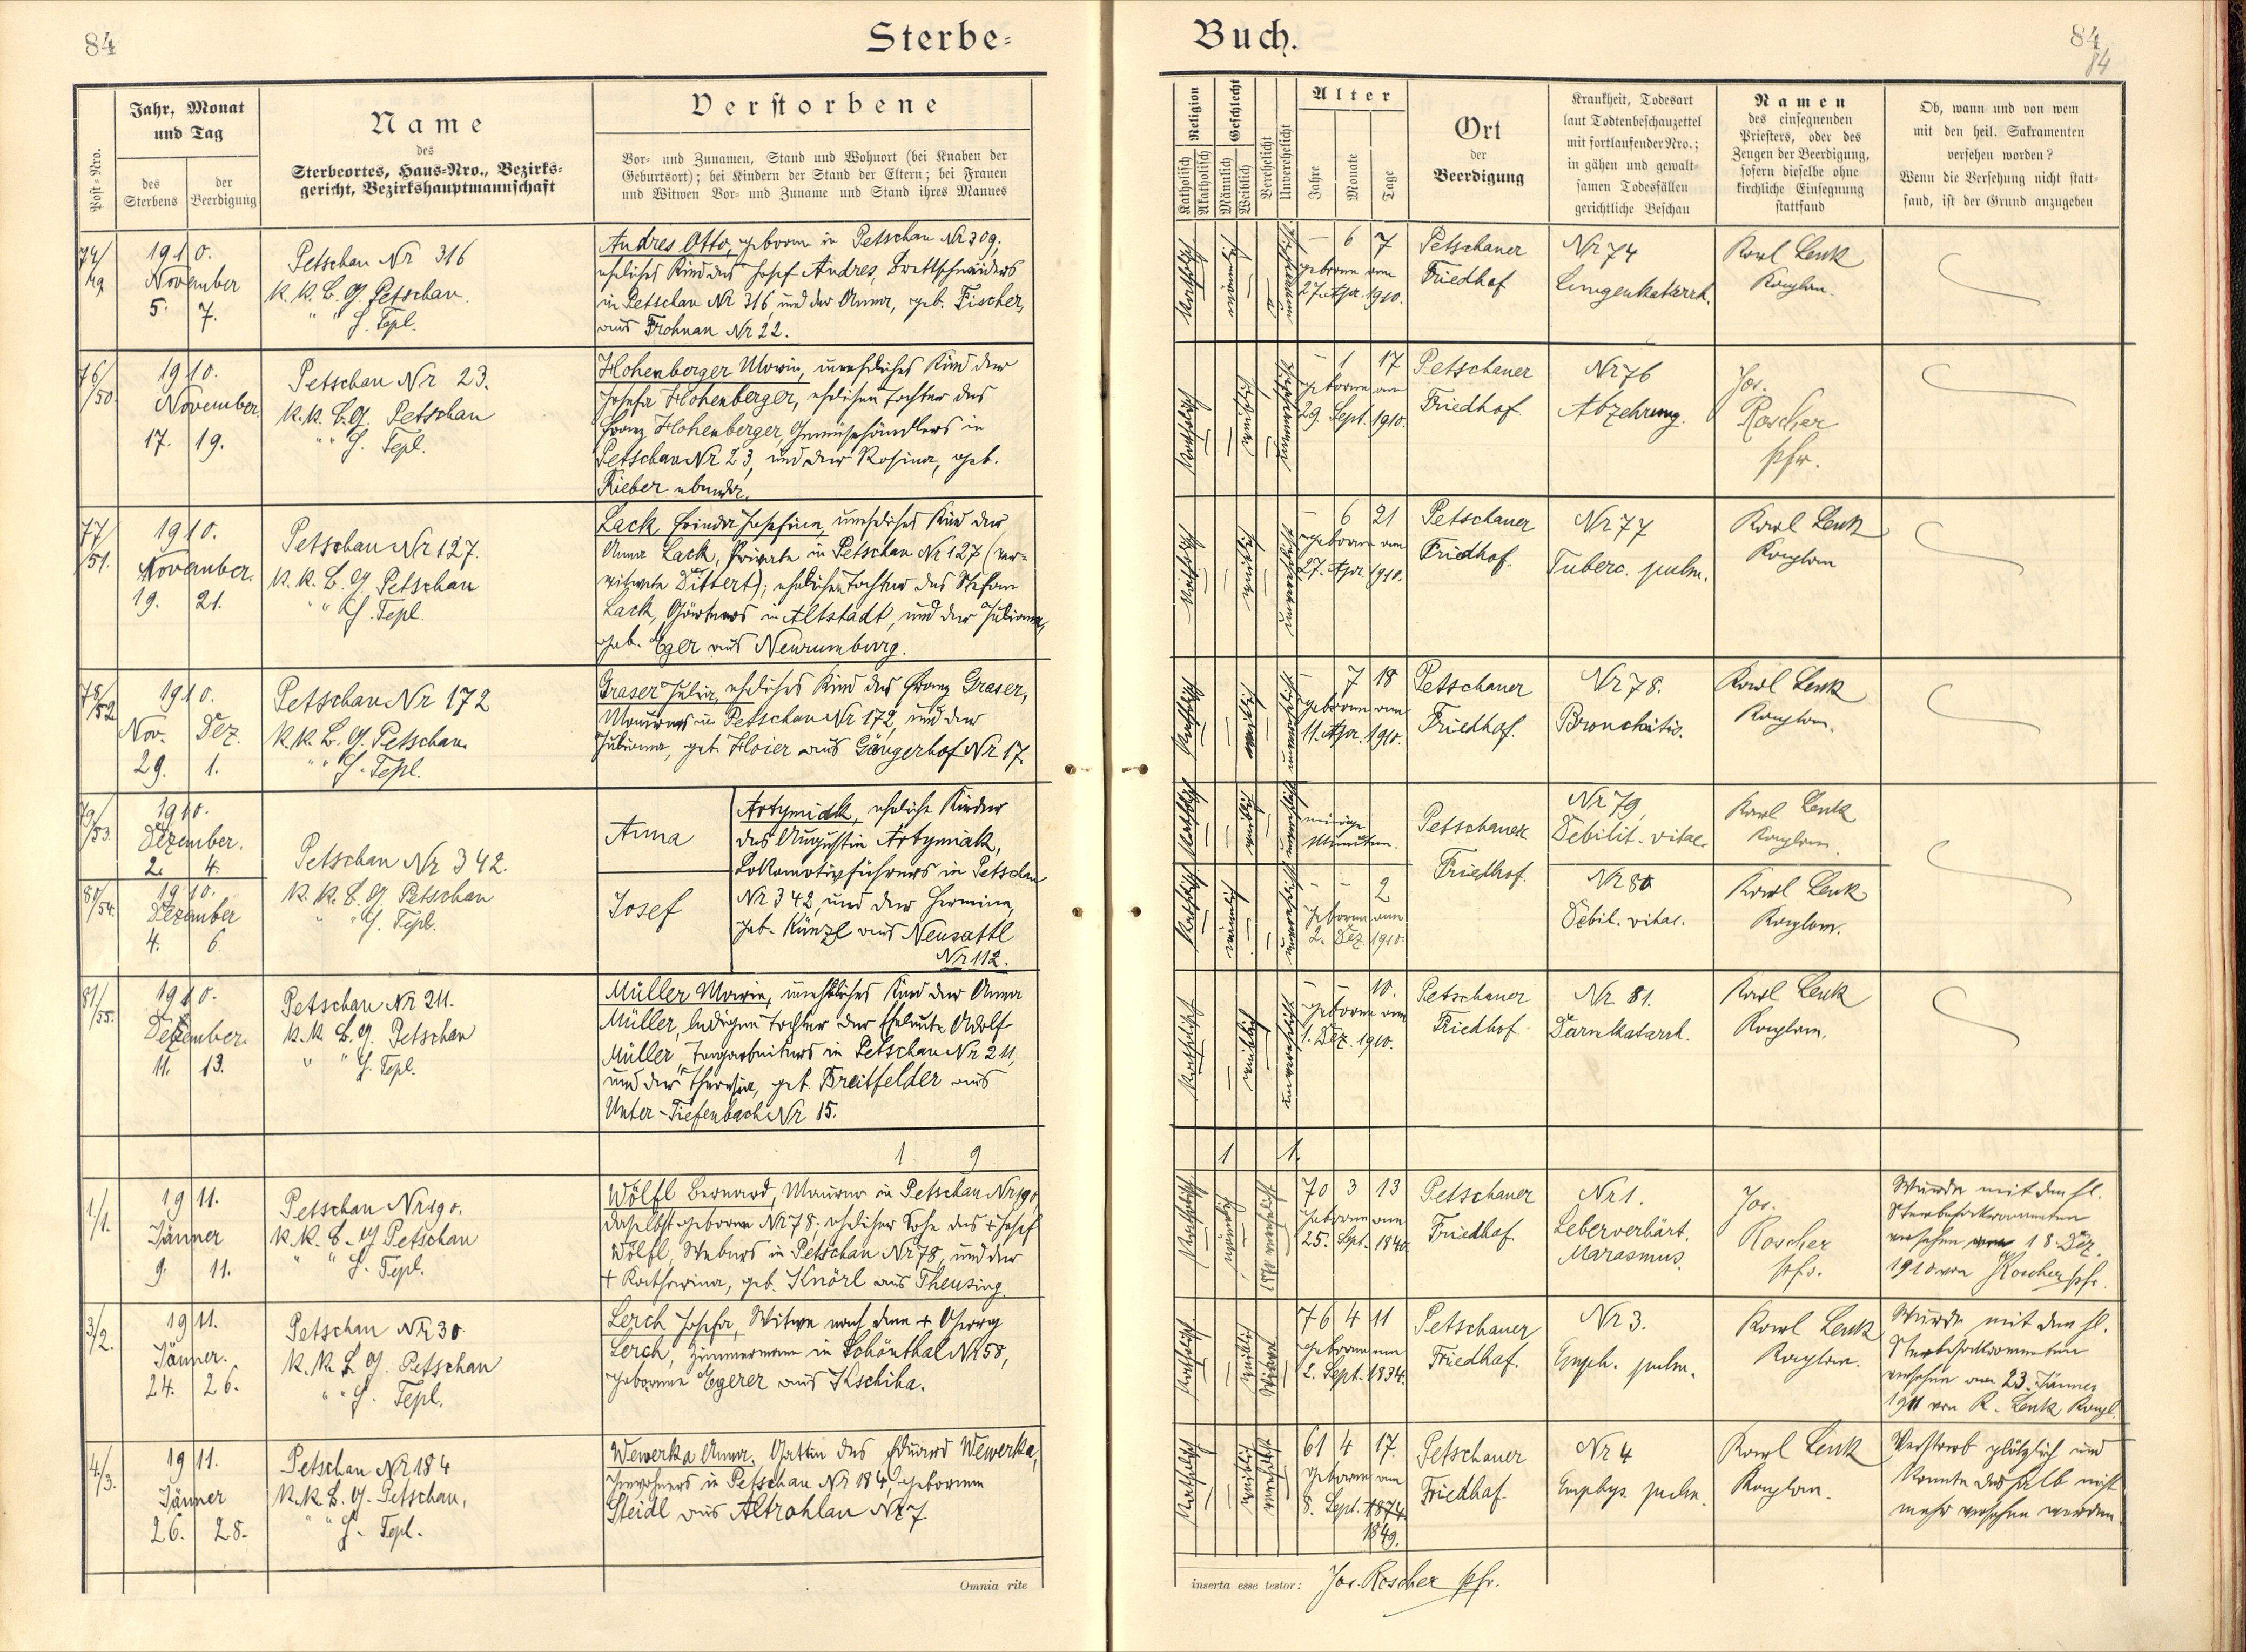 84
Sterbe-
Buch.
84
84
Post-Nro.
Jahr, Monat
und Tag
des
Sterbens
der
Beerdigung
Name
des
Sterbeortes, Haus-Nro., Bezirks-
gericht, Bezirkshauptmannschaft
Verstorbene
Vor- und Zunamen, Stand und Wohnort (bei Knaben der
Geburtsort); bei Kindern der Stand der Eltern; bei Frauen
und Witwen Vor- und Zuname und Stand ihres Mannes
Religion
Katholisch
Akatholisch
Geschlecht
Männlich
Weiblich
Verehelicht
Unverehelicht
Alter
Jahre
Monate
Tage
Ort
der
Beerdigung
Krankheit, Todesart
laut Todtenbeschauzettel
mit fortlaufender Nro.;
in gähen und gewalt-
samen Todesfällen
gerichtliche Beschau
Namen
des einsegnenden
Priesters, oder des
Zeugen der Beerdigung,
sofern dieselbe ohne
kirchliche Einsegnung
stattfand
Ob, wann und von wem
mit den heil. Sakramenten
versehen worden?
Wenn die Versehung nicht statt-
fand, ist der Grund anzugeben
74/
49
1910.
November
5. 7.
Petschau Nr 316
K. K. B. G. Petschau.
" " H. Tepl.
Andres Otto, geboren in Petschau Nr 309,
eheliches Kind des Josef Andres, Brettschneiders
in Petschau Nr 316, und der Anna, geb. Fischer,
aus Frohnau Nr 22.
katholisch
männlich
unverehelicht
– 6 7
geboren am
27. Apr. 1910.
Petschauer
Friedhof
Nr 74
Lungenkatarrh.
Karl Lenk
Kaplan.
76
/50
1910.
November
17. 19.
Petschau Nr 23.
K. K. B. G. Petschau
" " H. Tepl.
Hohenberger Maria, uneheliches Kind der
Josefa Hohenberger, ehelichen Tochter des
Franz Hohenberger, Gemüsehändlers in
Petschau Nr 23, und der Rosina, geb.
Rieber ebenda.
katholisch
weiblich
unverehelicht
– 1 17
geboren am
29. Sept. 1910.
Petschauer
Friedhof
Nr 76
Abzehrung.
Jos.
Roscher
Pfr.
77/
/51.
1910.
November.
19. 21.
Petschau Nr 127.
K. K. B. G. Petschau
" " H. Tepl.
Lack Frieda Josefine, uneheliches Kind der
Anna Lack, Private in Petschau Nr 127 (ver-
witwete Dittert); ehelichen Tochter des Stefan
Lack, Gärtners in Altstadt, und der Juliana,
geb. Eger aus Neurumburg.
katholisch
weiblich
unverehelicht
– 6 21
geboren am
27. Apr. 1910.
Petschauer
Friedhof.
Nr 77
Tuberc. pulm.
Karl Lenk
Kaplan
78/
52
1910.
Nov. Dez.
29. 1.
Petschau Nr 172
K. K. B. G. Petschau
" " H. Tepl.
Graser Julia, eheliches Kind des Franz Graser,
Maurers in Petschau Nr 172, und der
Juliana, geb. Hoier aus Gängerhof Nr 17.
katholisch
weiblich
unverehelicht
– 7 18
geboren am
11. Apr. 1910.
Petschauer
Friedhof.
Nr 78.
Bronchitis.
Karl Lenk
Kaplan.
79/
/53.
1910.
Dezember.
2. 4.
Petschau Nr 342.
K. K. B. G. Petschau
" " H. Tepl.
Anna
Artymiak, eheliche Kinder
des Augustin Artymiak,
Lokomotivführers in Petschau
Nr 342, und der Hermina,
geb. Künzl aus Neusattl
Nr 112.
katholisch
weiblich
unverehelicht
einige
Minuten.
Petschauer
Friedhof.
Nr 79,
Debilit. vitae.
Karl Lenk
Kaplan.
80/
/54.
1910.
Dezember
4. 6.
Josef
katholisch
männlich
unverehelicht
– – 2
geboren am
2. Dez. 1910.
Nr 80
Debil. vitae.
Karl Lenk
Kaplan.
81/
/55.
1910.
Dezember.
11. 13.
Petschau Nr 211.
K. K. B. G. Petschau
" " H. Tepl.
Müller Maria, uneheliches Kind der Anna
Müller, ledigen Tochter der Eheleute Adolf
Müller, Tagarbeiters in Petschau Nr 211,
und der Theresia, geb. Breitfelder aus
Unter-Tiefenbach Nr 15.
katholisch
weiblich
unverehelicht
– – 10.
geboren am
1. Dez. 1910.
Petschauer
Friedhof.
Nr 81.
Darmkatarrh.
Karl Lenk
Kaplan.
1 9
1 1.
1/
/1.
1911.
Jänner
9. 11.
Petschau Nr 190.
K. K. B. G. Petschau
" " H. Tepl.
Wölfl Bernard, Maurer in Petschau Nr 190,
daselbst geboren Nr 78. ehelicher Sohn des + Josef
Wölfl, Webers in Petschau Nr 78, und der
+ Katharina, geb. Knörl aus Theusing.
katholisch
männlich
verehelicht
70 3 13
geboren am
25. Sept. 1840.
Petschauer
Friedhof.
Nr 1.
Leberverhärt.
Marasmus.
Jos.
Roscher
Pfr.
Wurde mit den hl.
Sterbesakramenten
versehen am 18. Dez.
1910 von J Roscher Pfr.
3/
/2.
1911.
Jänner.
24. 26.
Petschau Nr 30.
K. K. B. G. Petschau
" " H. Tepl.
Lerch Josefa, Witwe nach dem + Georg
Lerch, Zimmermann in Schönthal Nr 58,
geborene Egerer aus Kschiha.
katholisch
weiblich
Witwe
76 4 11
geboren am
2. Sept. 1834.
Petschauer
Friedhof.
Nr 3.
Emph. pulm.
Karl Lenk
Kaplan.
Wurde mit den hl.
Sterbesakramenten
versehen am 23. Jänner
1911 von K. Lenk Kapl.
4/
/3.
1911.
Jänner
26. 28.
Petschau Nr 184
K. K. B. G. Petschau,
" " H. Tepl.
Wewerka Anna, Gattin des Eduard Wewerka,
Inwohners in Petschau Nr 184, geborene
Steidl aus Altrohlau Nr 7
katholisch
weiblich
verehelicht
61 4 17.
geboren am
8. Sept. 1874.
1849.
Petschauer
Friedhof.
Nr 4
Emphys. pulm.
Karl Lenk
Kaplan.
Verstarb plötzlich und
konnte deshalb nicht
mehr versehen werden
Omnia rite
inserta esse testor: Jos. Roscher Pfr.